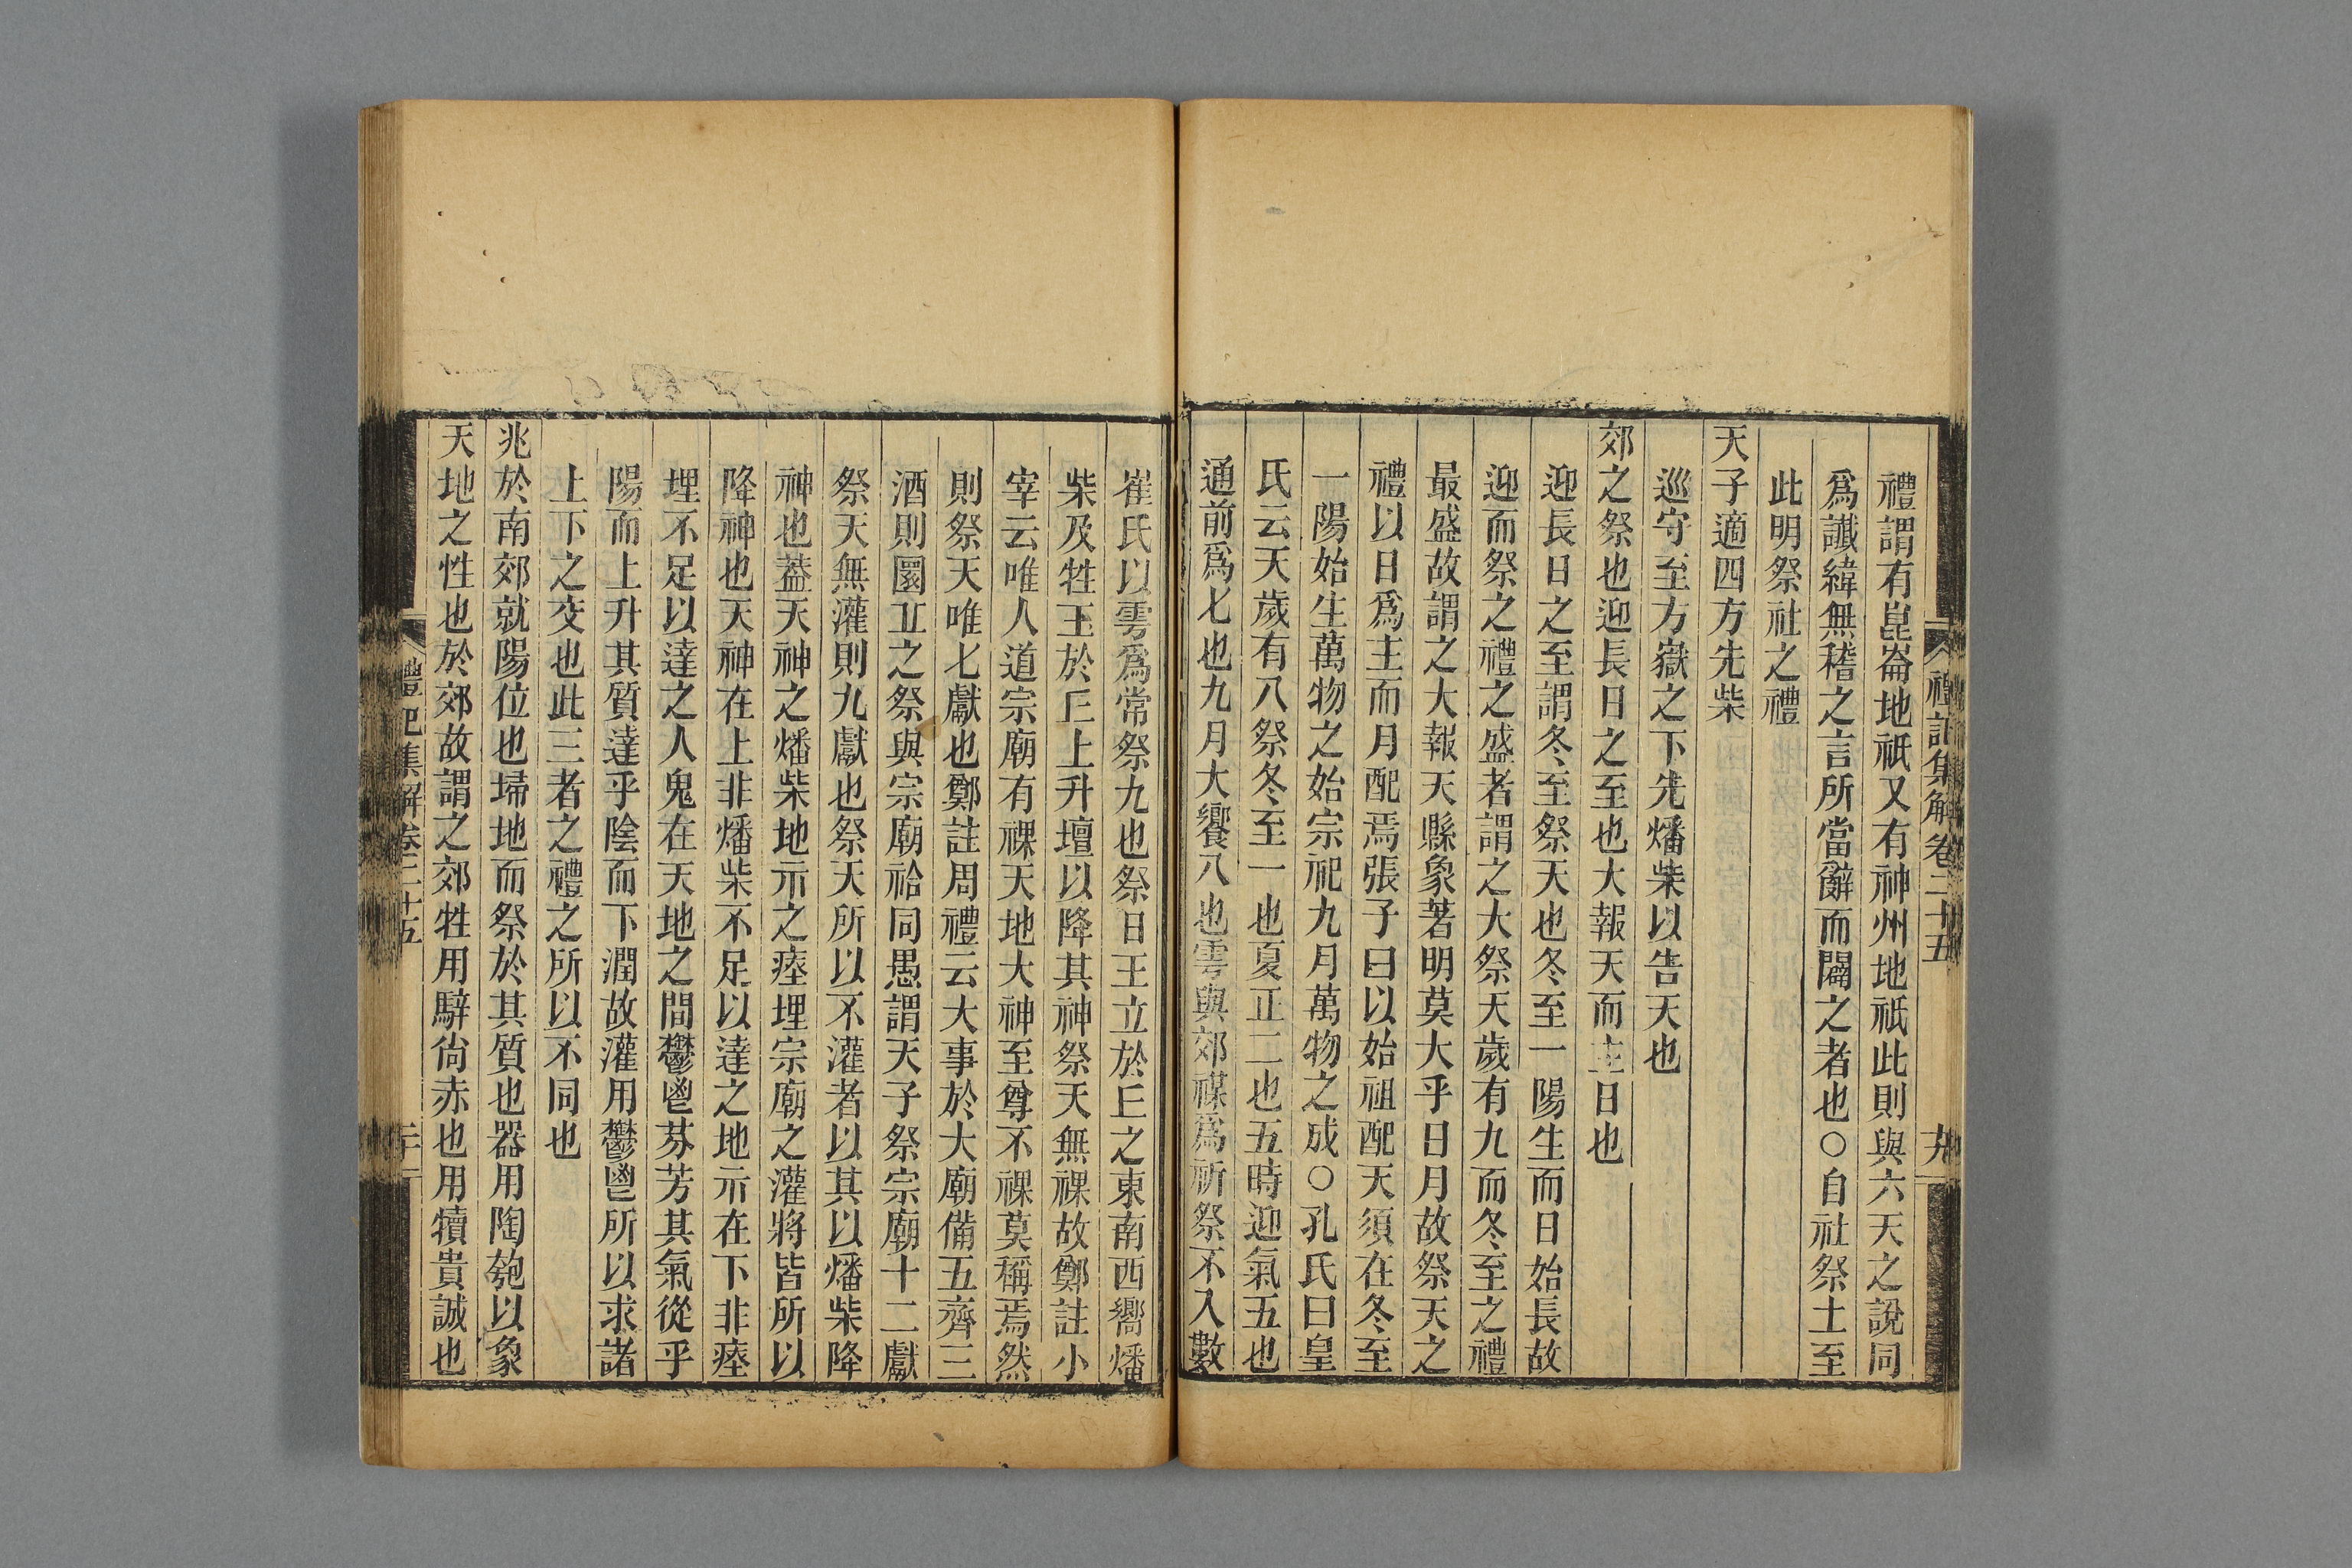 禮記集解卷二十五
十九
禮謂有崑崙地祇又有神州地祇此則與六天之說同
爲讖緯無稽之言所當辭而闢之者也○自社祭土至
此明祭社之禮
天子適四方先柴
巡守至方嶽之下先燔柴以告天也
郊之祭也迎長日之至也大報天而主日也
迎長日之至謂冬至祭天也冬至一陽生而日始長故
迎而祭之禮之盛者謂之大祭天歲有九而冬至之禮
最盛故謂之大報天縣象著明莫大乎日月故祭天之
禮以日爲主而月配焉張子曰以始祖配天須在冬至
一陽始生萬物之始宗祀九月萬物之成○孔氏曰皇
氏云天歲有八祭冬至一也夏正二也五時迎氣五也
通前爲七也九月大饗八也雩與郊禖爲祈祭不入數
崔氏以雩爲常祭九也祭日王立於丘之東南西嚮燔
柴及牲玉於丘上升壇以降其神祭天無祼故鄭註小
宰云唯人道宗廟有祼天地大神至尊不祼莫稱焉然
則祭天唯七獻也鄭註周禮云大事於大廟備五齊三
酒則圜丘之祭與宗廟祫同愚謂天子祭宗廟十二獻
祭天無灌則九獻也祭天所以不灌者以其以燔柴降
神也葢天神之燔柴地示之瘞埋宗廟之灌將皆所以
降神也天神在上非燔柴不足以達之地示在下非瘞
埋不足以達之人鬼在天地之間鬱鬯芬芳其氣從乎
陽而上升其質達乎陰而下潤故灌用鬱鬯所以求諸
上下之交也此三者之禮之所以不同也
兆於南郊就陽位也埽地而祭於其質也器用陶匏以象
天地之性也於郊故謂之郊牲用騂尙赤也用犢貴誠也
禮記集解卷二十五
二十